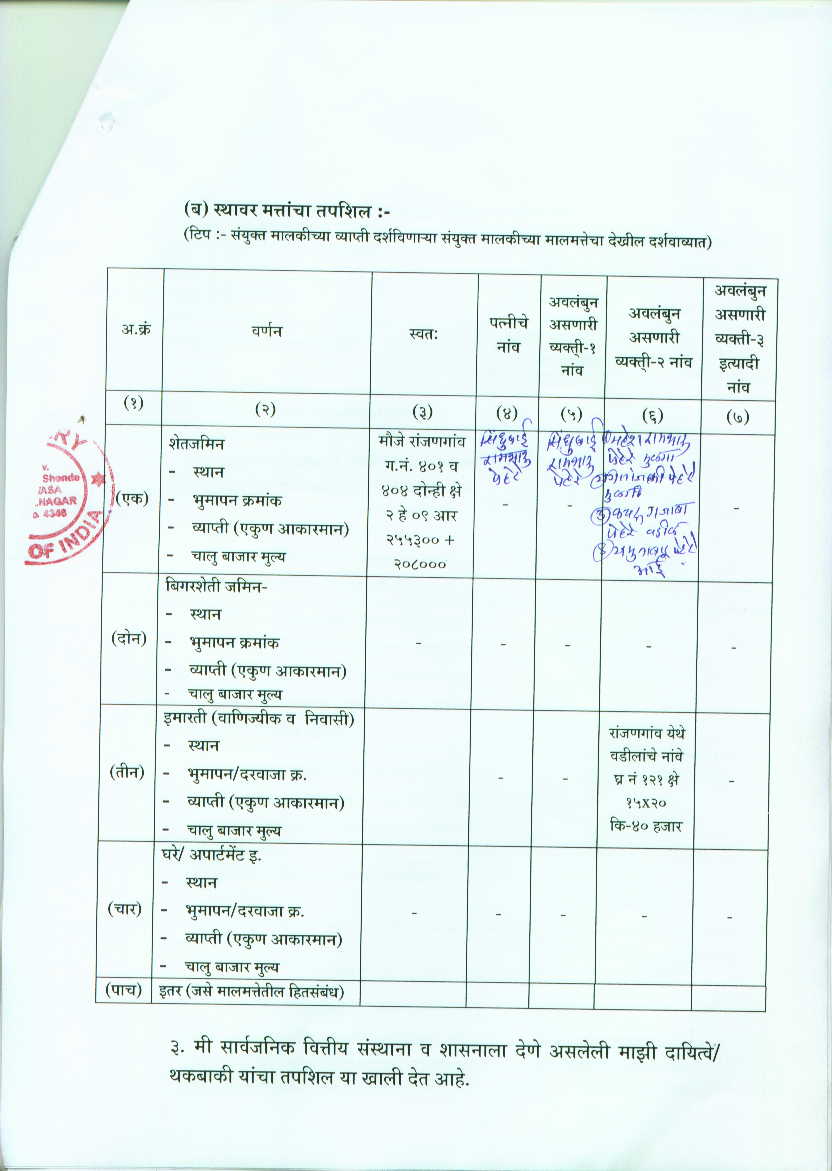 (ब) स्थावर मत्तांचा तपशिल :-
(टिप :- संयुक्त मालकीच्या व्याप्ती दर्शविणाऱ्या संयुक्त मालकीच्या मालमत्तेचा देखील दर्शवाव्यात)
अ.क्रं
वर्णन
स्वतः
पत्नीचे
नांव
अवलंबुन
असणारी
व्यक्ती-१
नांव
अवलंबुन
असणारी
व्यक्ती-२ नांव
अवलंबुन
असणारी
व्यक्ती-३
इत्यादी
नांव
(१)
(२)
(३)
(४)
(५)
(६)
(७)
(एक)
शेतजमिन
- स्थान
- भुमापन क्रमांक
- व्याप्ती (एकुण आकारमान)
- चालु बाजार मुल्य
मौजे रांजणगांव
ग.नं. ४०१ व
४०४ दोन्ही क्षे
२ हे ०९ आर
२५५३०० +
२०८०००
सिंधुबाई
रामभाऊ
पेहेरे
-
सिंधुबाई
रामभाऊ
पेहेरे
-
रामभाऊ
पेहेरे मुलगा
पेहेरे वडील
आई
-
(दोन)
बिगरशेती जमिन-
- स्थान
- भुमापन क्रमांक
- व्याप्ती (एकुण आकारमान)
- चालु बाजार मुल्य
-
-
-
-
-
(तीन)
इमारती (वाणिज्यीक व निवासी)
- स्थान
- भुमापन/दरवाजा क्र.
- व्याप्ती (एकुण आकारमान)
- चालु बाजार मुल्य
-
-
रांजणगांव येथे
वडीलांचे नांवे
घ्र नं १२१ क्षे
१५X२०
कि-४० हजार
-
(चार)
घरे/ अपार्टमेंट इ.
- स्थान
- भुमापन/दरवाजा क्र.
- व्याप्ती (एकुण आकारमान)
- चालु बाजार मुल्य
-
-
-
-
-
(पाच)
इतर (जसे मालमत्तेतील हितसंबंध)
३. मी सार्वजनिक वित्तीय संस्थाना व शासनाला देणे असलेली माझी दायित्वे/
थकबाकी यांचा तपशिल या खाली देत आहे.
RY
v.
Shende
ASA
NAGAR
4346
OF INDIA